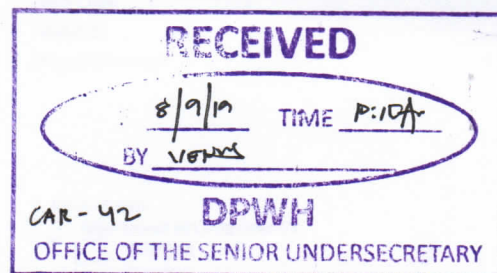 RECEIVED
8/9/19 TIME
BY VENUS
CAR - 42 DPWH
OFFICE OF THE SENIOR UNDERSECRETARY